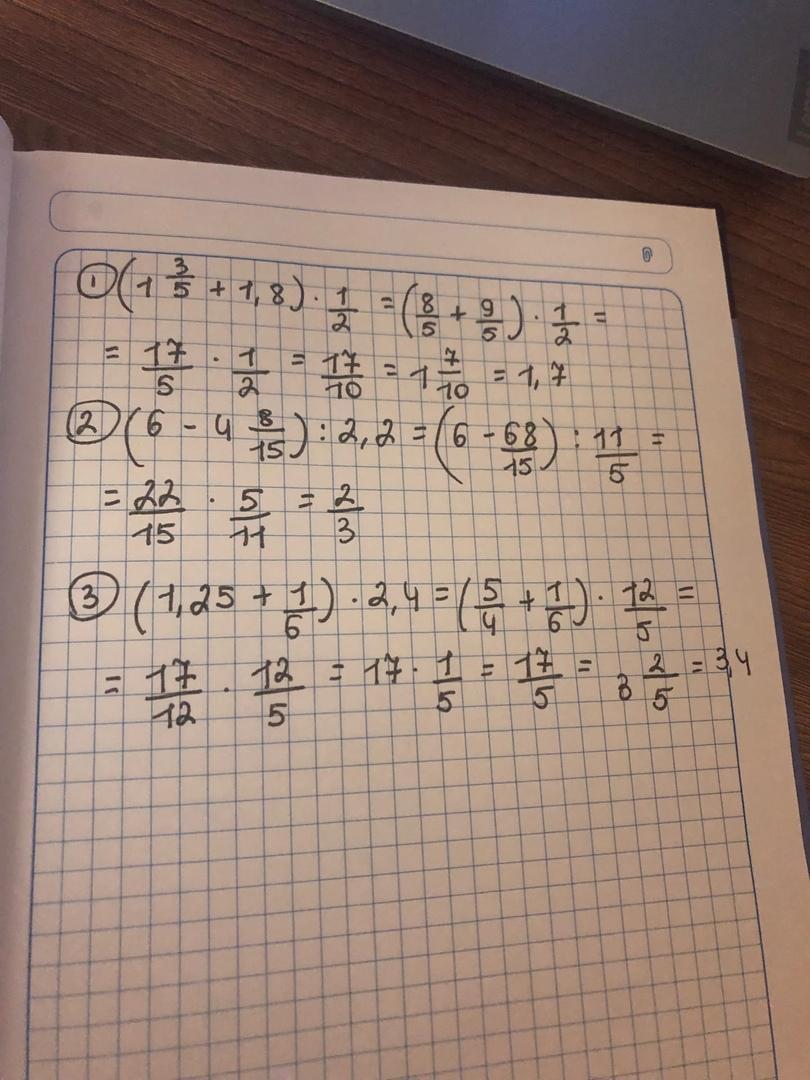 ① (1 3/5 + 1,8) · 1/2 = (8/5 + 9/5) · 1/2 =
= 17/5 · 1/2 = 17/10 = 1 7/10 = 1,7
② (6 - 4 8/15) : 2,2 = (6 - 68/15) : 11/5 =
= 22/15 · 5/11 = 2/3
③ (1,25 + 1/6) · 2,4 = (5/4 + 1/6) · 12/5 =
= 17/12 · 12/5 = 17 · 1/5 = 17/5 = 3 2/5 = 3,4